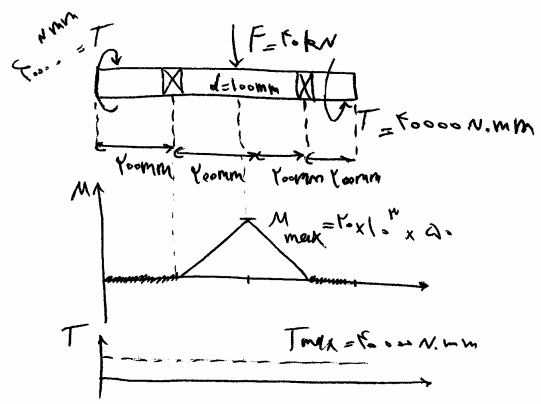 ۴۰۰۰۰ N.mm = T
F = ۴۰ kN
d = 100mm
T = ۴۰۰۰۰ N.mm
۲۰۰mm ۲۰۰mm ۲۰۰mm ۲۰۰mm
M
M max = ۲۰ × ۱۰^۳ × ۵۰
T
Tmax = ۴۰۰۰۰ N.mm